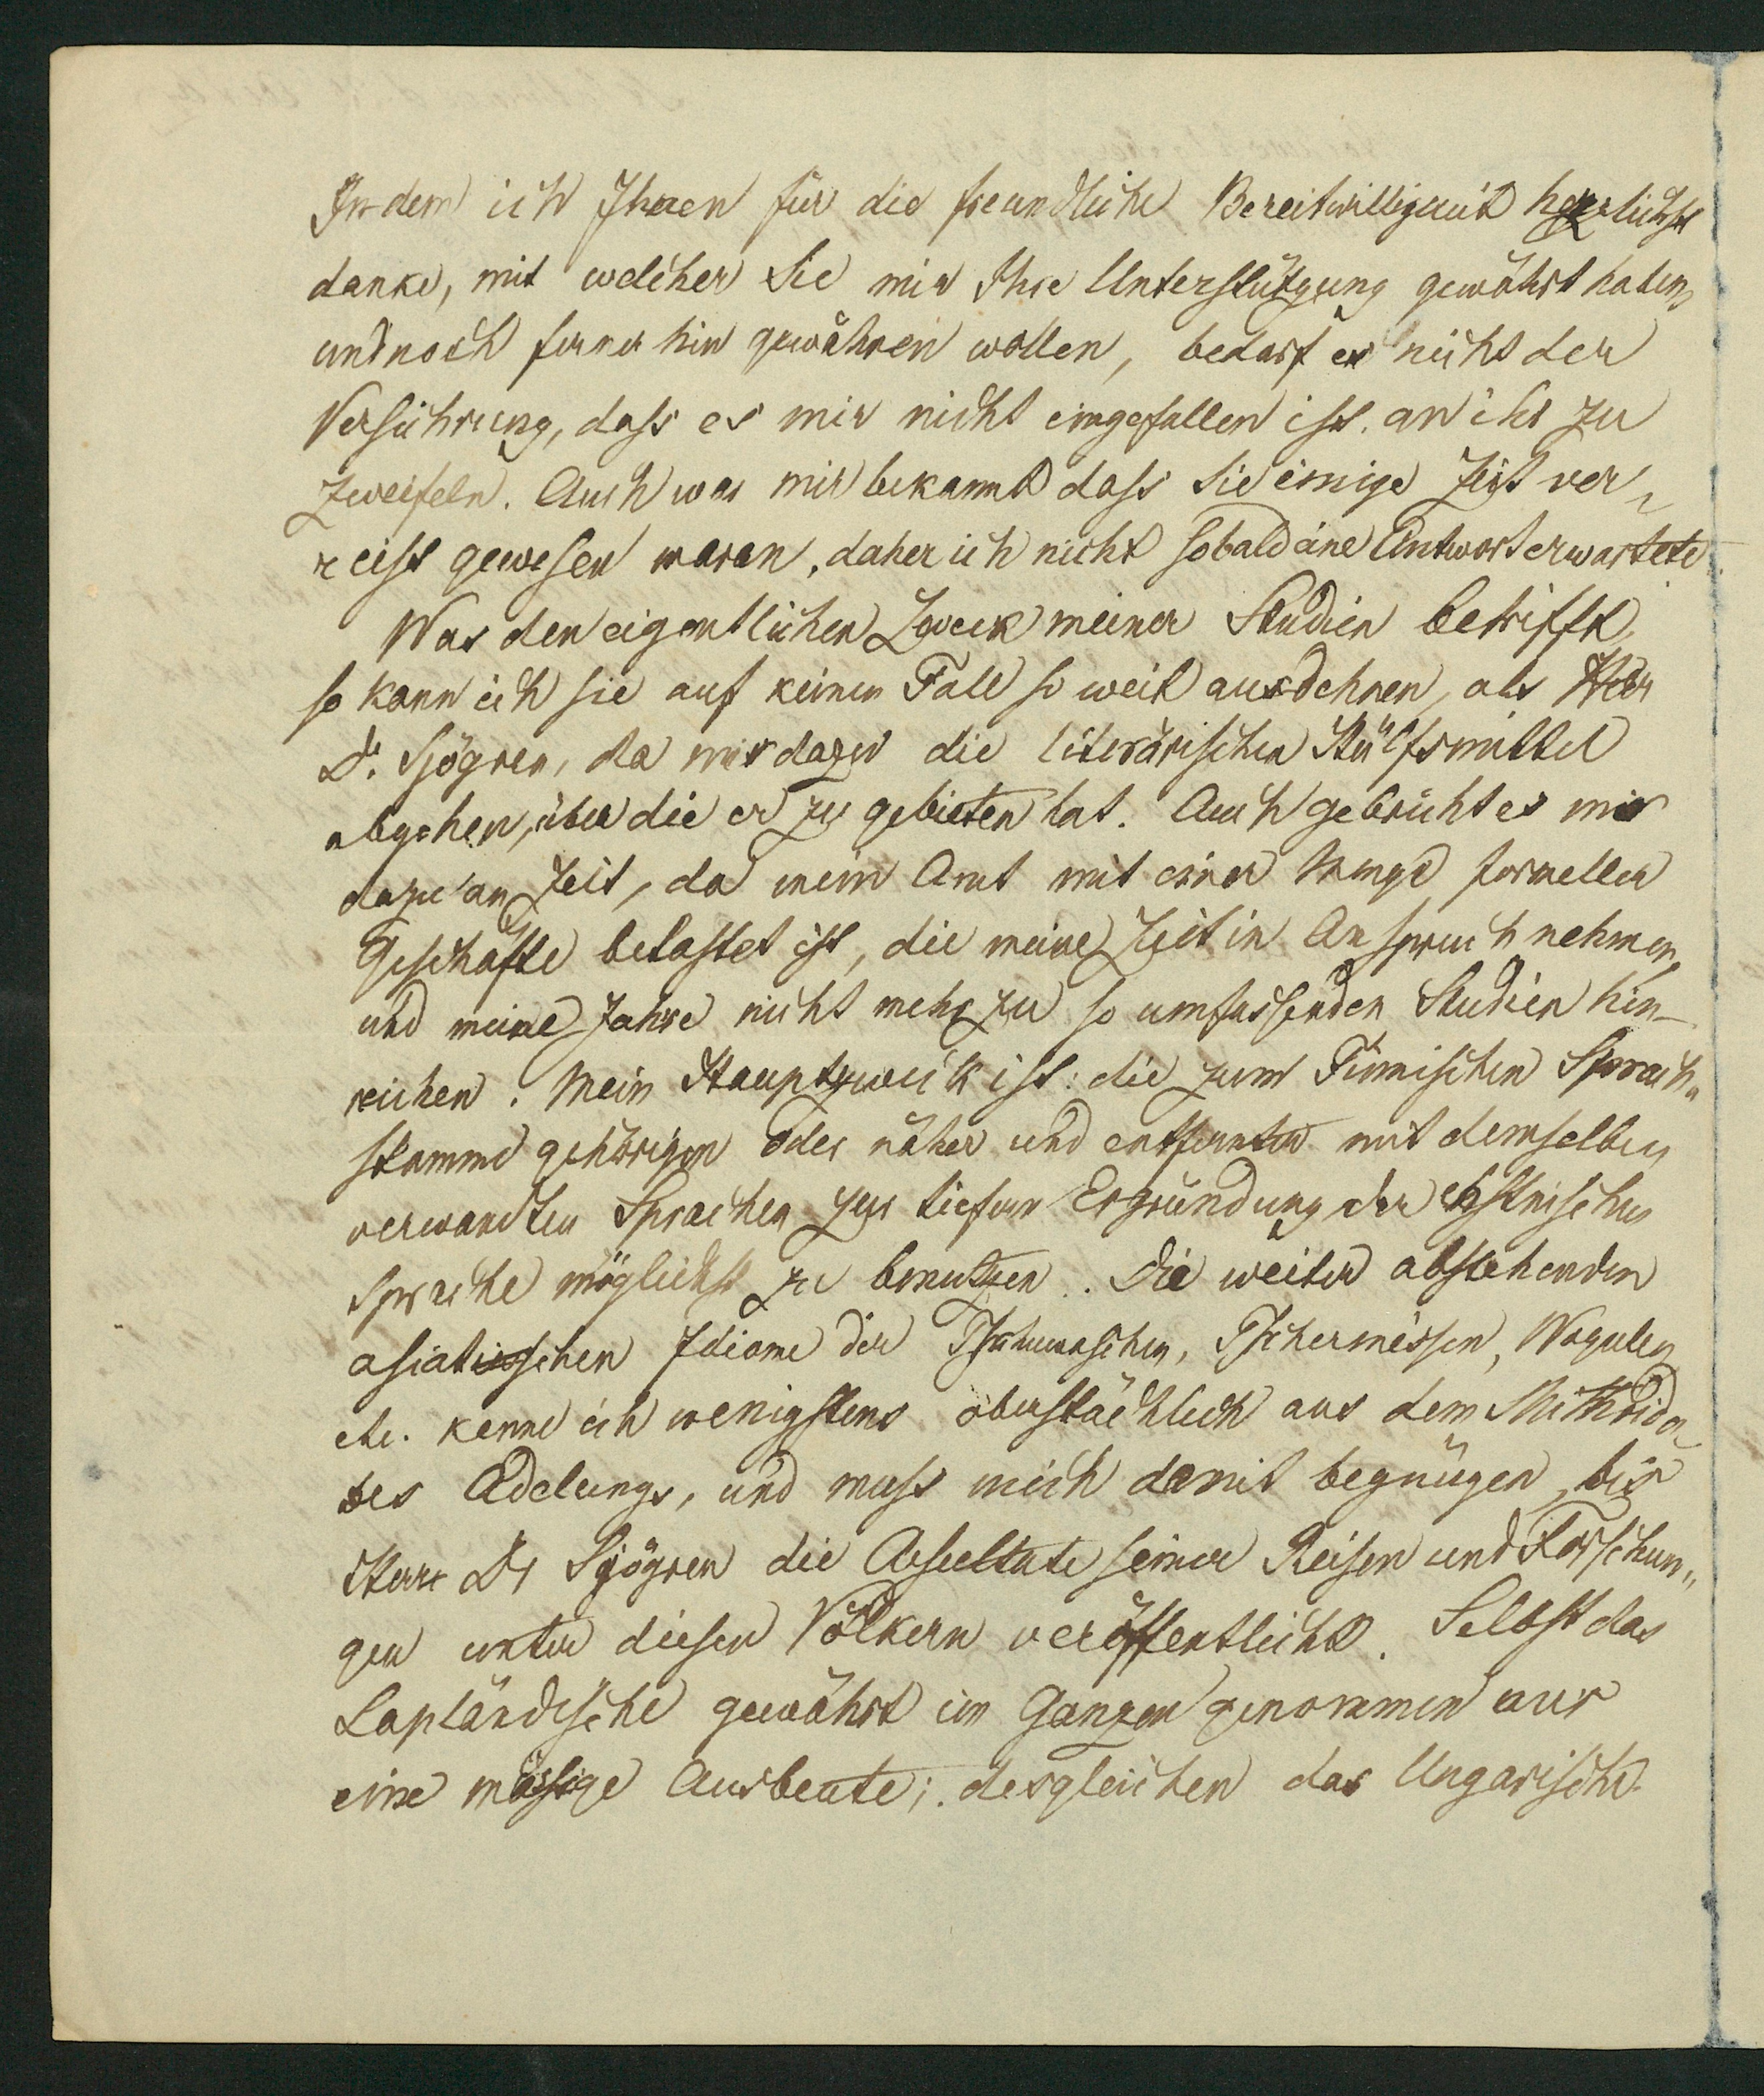 In dem ich Ihnen für die freundliche Bereitwilligkeit herzlichst
danke, mit welcher Sie mir Ihre Unterstützung gewährt haben
und noch ferner hin gewähren wollen, bedarf es nicht der
Versichrung, dass es mir nicht eingefallen ist an ihr zu
zweifeln. Auch war mir bekannt dass Sie einige Zeit ver-
reist gewesen waren, daher ich nicht sobald eine Antwort erwartete.
Was den eigentlichen Zweck meiner Studien betrifft
so kann ich sie auf keinen Fall so weit ausdehnen, als Herr
Dr. Sjögren, da mir dazu die literärischen Hülfsmittel
abgehen, über die er zu gebieten hat. Auch gebricht es mir
dazu an Zeit, da mein Amt mit einer Menge formeller
Geschäfte belastet ist, die meine Zeit in Anspruch nehmen,
und meine Jahre nicht mehr zu so umfassenden Studien hin-
reichen. Mein Hauptzweck ist: die zum Finnischen Sprach-
stamme gehörigen oder näher und entfernter mit demselben
verwandten Sprachen zur tiefern Ergründung der ehstnischen
Sprache möglichst zu benutzen. Die weiter abstehenden
asiatischen Idiome der Tschuwaschen, Tschermissen, Wogulen
etc. kenne ich wenigstens oberflächlich aus dem Mithrida-
tes Adelungs, und muss mich damit begnügen, bis
Herr Dr Sjögren die Resultate seiner Reisen und Forschun-
gen unter diesen Völkern veröffentlicht. Selbst das
Lapländische gewährt im Ganzen genommen nur
eine mässige Ausbeute; desgleichen das Ungarische